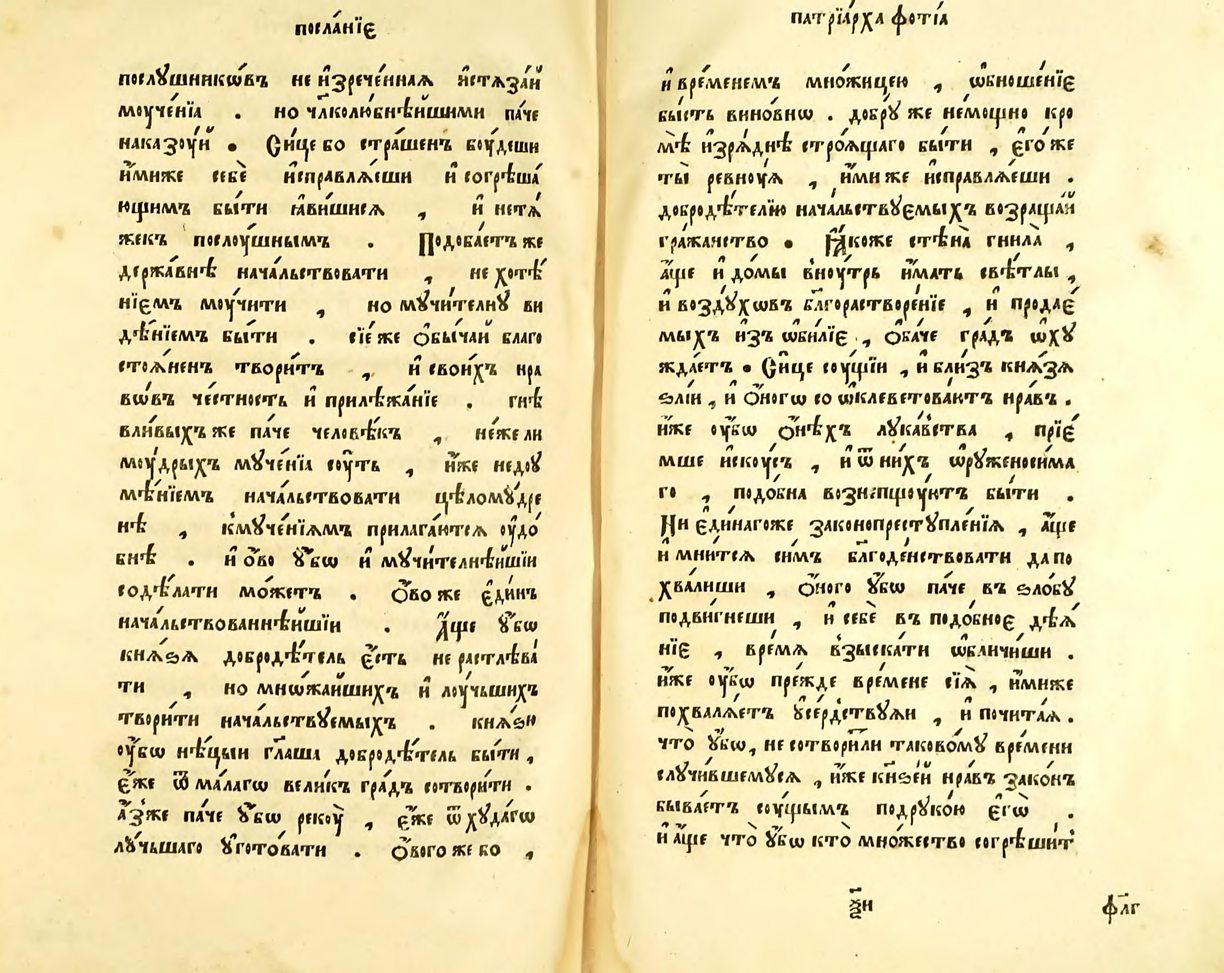 посла́нїє
послꙋшникѡ́въ не и҆зрече́ннаѧ и҆стѧза́й
моуче́нїа . но чл҃колюбнѣ́йшими па́че
наказоу́й . Си́це бо стра́шенъ боу́деши
и҆́миже себѐ и҆справлѧ́еши и҆ согрѣша́
ющимъ бы́ти ꙗ҆ви́шисѧ , и҆ нетѧ́
жекъ послоу́шнымъ . Подоба́етъ же
держа́внѣ нача́льствовати , не хотѣ́
нїємъ моучи́ти , но мꙋчи́телнꙋ ви
дѣ́нїемъ бы́ти . сїе́ же ѻ҆бы́чай благо
стоѧ́ненъ твори́тъ , и҆ свои́хъ нра
вѡ́въ че́стность и҆ прилѣжа́нїе . гнѣ
вли́выхъ же па́че человѣ́къ , не́же ли
моу́дрыхъ мꙋче́нїа соу́ть , и҆̀же недоу
мѣ́нїемъ нача́льствовати цѣломꙋ́дре
нѣ , к̾мꙋче́нїѧмъ прилага́ютсѧ оу҆до́
бнѣ . и҆ ѻво ꙋ҆́бѡ и҆ мꙋчи́телнѣйшїи
содѣ́лати мо́жетъ . Ѻ҆́во же є҆ди́нъ
нача́льствованнѣйшїи . А҆́ще ꙋ҆́бѡ
кнѧ́ѕѧ добродѣ́тель є҆́сть не растлѣва́
ти , но мнѡ́жайшихъ и҆ лоу́чьшихъ
твори́ти нача́льствꙋемыхъ . кнѧ́ѕи
оу҆́бѡ нѣ́цыи гл҃аша добродѣ́тель бы́ти ,
є҆́же ѿ ма́лагѡ вели́къ гра́дъ сотвори́ти .
а҆́зже па́че ꙋ҆́бѡ рекоу̀ , є҆́же ѿ хꙋда́гѡ
лꙋ́чьшаго ꙋ҆гото́вати . Ѻ҆́вого же бо ,
патрїа́рха фо́тїа
и҆ вре́менемъ мно́жицею , ѡ҆бноше́нїє
бы́сть вино́внѡ . добрꙋ́ же не́мощно кро
мѣ̀ и҆зрѧ́днѣ строѧ́щаго бы́ти , є҆го́ же
ты̀ ревноу́ѧ , и҆́ми же и҆справлѧ́еши .
добродѣ́телїю нача́льствꙋемыхъ возраща́й
гра́жанство . Ꙗ҆́коже стѣна̀ гнила̀ ,
а҆́ще и҆ до́мы в̾ноу́трь и҆́мать свѣ́тлы ,
и҆ возꙋ́дꙋхѡвъ бл҃горастворе́нїе , и҆ продає́
мыхъ и҆зъ ѡ҆би́лїє , ѻ҆ба́че гра́дъ ѡ҆хꙋ
жда́етъ . Си́це соу́щїи , и҆ бли́зъ кнѧ́зѧ
ѕлі́и , и҆ ѻ҆́ногѡ со ѡ҆клевето́ваютъ нра́въ .
и҆́же оу҆́бѡ ѻ҆́нѣхъ лꙋка́вства , прїє́
мше и҆скоу́съ , и҆ ѿ ни́хъ ѡ҆рꙋженоси́ма
го , подо́бна возне́пщоуютъ бы́ти .
Ни є҆ди́нагоже законопрестꙋпле́нїѧ , а҆́ще
и҆ мни́тсѧ си́мъ бл҃годе́нствовати да по
хва́лиши , ѻ҆́ного ꙋ҆́бѡ па́че въ ѕло́бꙋ
подви́гнеши , и҆ себѐ въ подо́бноє дѣѧ́
нїє , вре́мѧ в̾зыска́ти ѡ҆бличи́ши .
и҆́же оу҆́бѡ пре́жде вре́мене сїѧ̀ , и҆́миже
похвалѧ́етъ ꙋ҆се́рдствꙋѧи , и҆ почита́ѧ .
что̀ ꙋ҆́бѡ , не сотвори́ли таково́мꙋ вре́мени
слꙋчи́вшемꙋсѧ , и҆́же кнѕе́й нра́въ зако́нъ
быва́етъ соу́щымъ подрꙋко́ю є҆гѡ̀ .
и҆ а҆́ще что̀ ꙋ҆́бѡ кто̀ мно́жество согрѣши́тъ
фл҃г